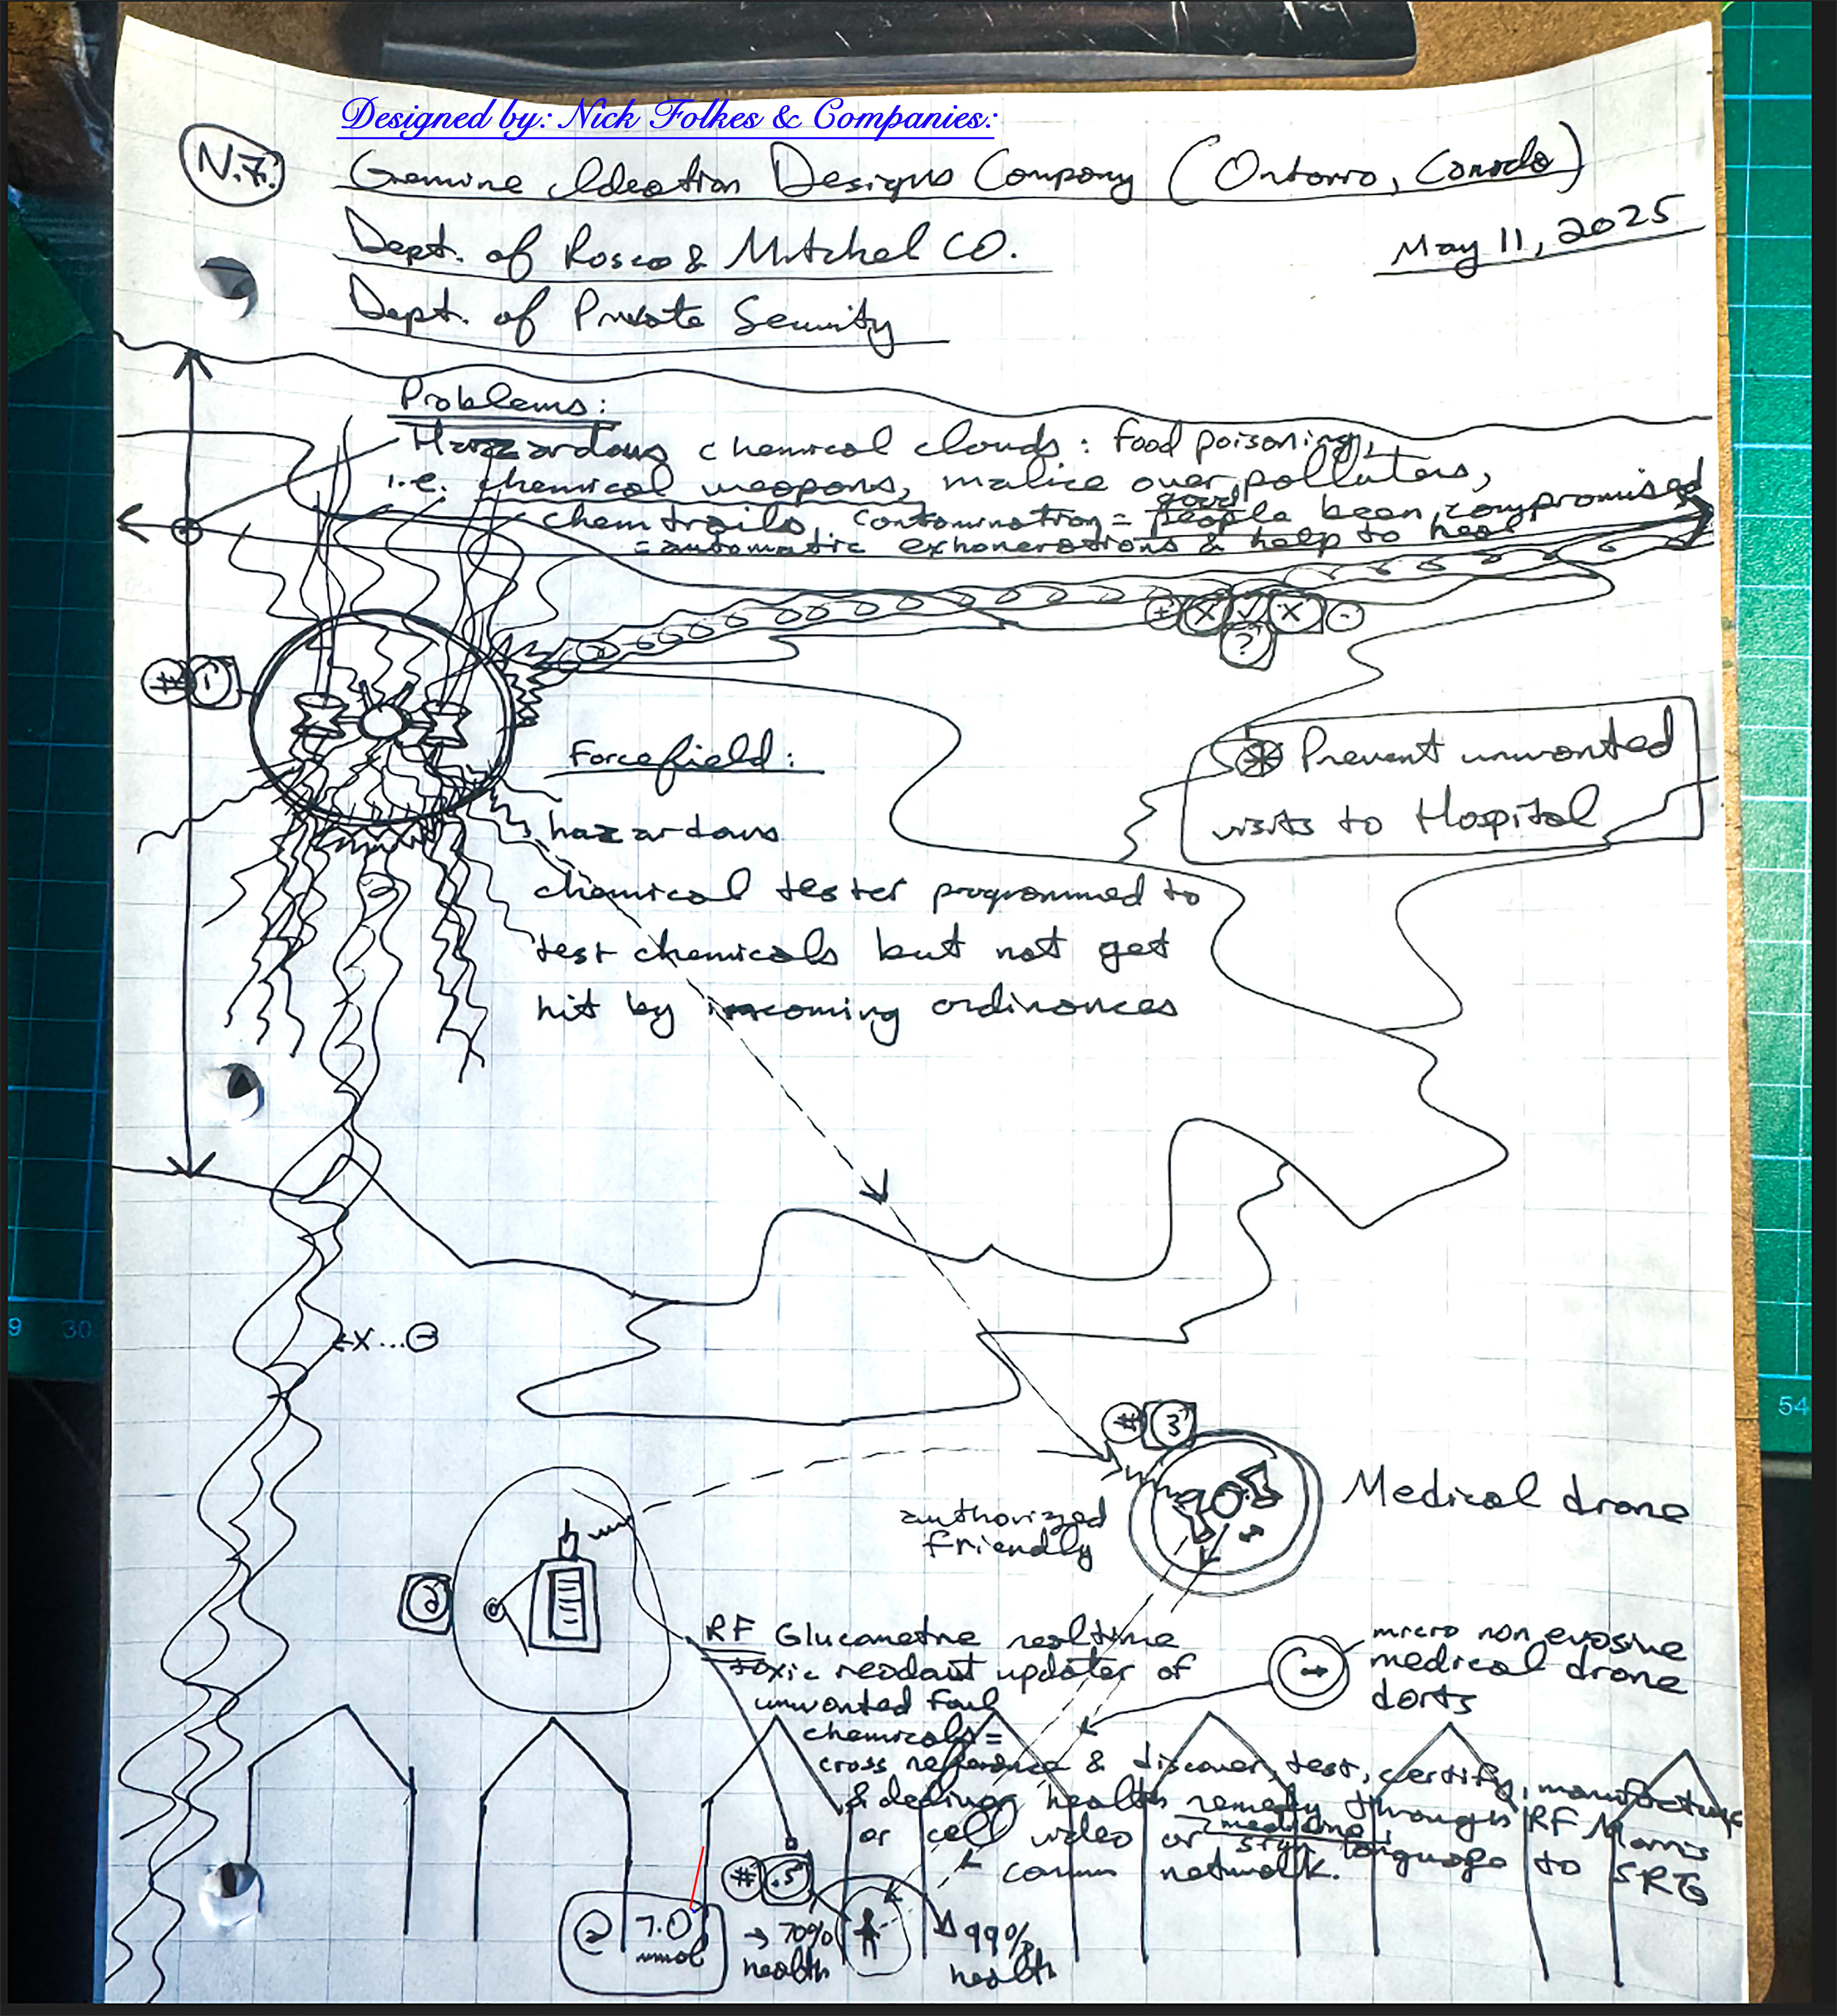 Designed by: Nick Folkes & Companies:
N.F. Genuine Ideation Designs Company (Ontario, Canada)
Dept. of Rosco & Mitchel CO.
May 11, 2025
Dept. of Private Security
Problems:
Hazzardous chemical clouds: food poisoning,
i.e. chemical weapons, malice over polluters,
chemtrails, contamination = good people been compromised
= automatic exhonerations & help to heal
+ X ✓ X -
?
# 1
Forcefield:
hazardous
chemical tester programmed to
test chemicals but not get
hit by incoming ordinances
* Prevent unwanted
visits to Hospital
# 3
Medical drone
authorized
friendly
2
RF Glucametre realtime
toxic readout updater of
unwanted foul
chemicals =
cross reference & discover, test, certify, manufacture
& deliver health remedy through RF
or cell video or medicine, sign language to SRG
comm network.
micro non evasive
medical drone
darts
# .5
@ 7.0
mmol
→ 70%
health
99%
health